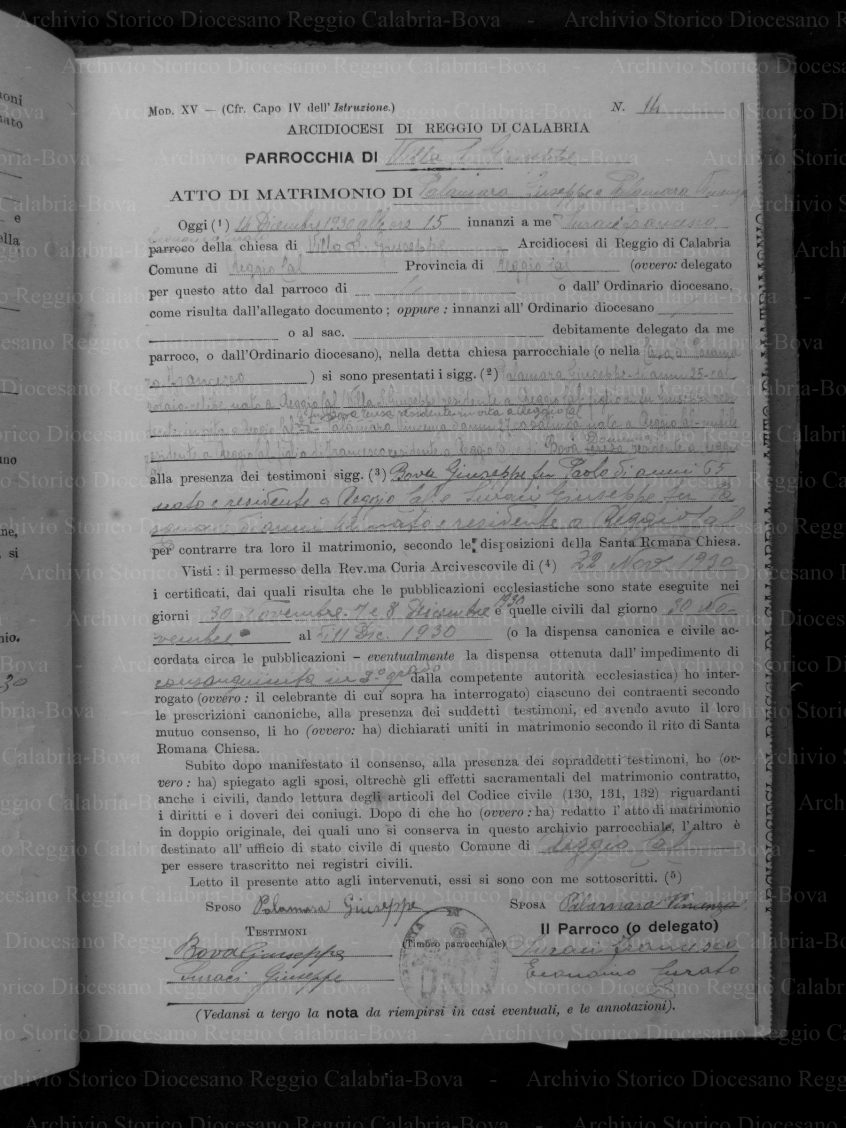 MOD. XV — (Cfr. Capo IV dell' Istruzione.) N. 14
ARCIDIOCESI DI REGGIO DI CALABRIA
PARROCCHIA DI Villa S. Giuseppe
ATTO DI MATRIMONIO DI Palamara Giuseppe e Palamara Vincenza
Oggi (1) 14 Dicembre 1930 alle ore 15 innanzi a me Suraci
parroco della chiesa di Villa S. Giuseppe Arcidiocesi di Reggio di Calabria
Comune di Reggio Cal Provincia di Reggio Cal (ovvero: delegato
per questo atto dal parroco di o dall' Ordinario diocesano,
come risulta dall'allegato documento; oppure: innanzi all' Ordinario diocesano
o al sac. debitamente delegato da me
parroco, o dall'Ordinario diocesano), nella detta chiesa parrocchiale (o nella
) si sono presentati i sigg. (2) Palamara Giuseppe di anni 25
nato a Reggio Cal Villa S. Giuseppe residente a Reggio Cal
residente in vita a Reggio Cal
Palamara Vincenza d'anni 27 nata a Reggio Cal
residente a Reggio Cal Francesco residente a Reggio Cal Bova Domenica residente a Reggio
alla presenza dei testimoni sigg. (3) Bova Giuseppe fu Paolo di anni 65
nato e residente a Reggio Cal e Suraci Giuseppe fu
di anni nato e residente a Reggio Cal
per contrarre tra loro il matrimonio, secondo le disposizioni della Santa Romana Chiesa.
Visti: il permesso della Rev.ma Curia Arcivescovile di (4) 22 Nov. 1930
i certificati, dai quali risulta che le pubblicazioni ecclesiastiche sono state eseguite nei
giorni 30 Novembre - 7 e 8 Dicembre 1930 e quelle civili dal giorno 30 No-
vembre al 11 Dic. 1930 (o la dispensa canonica e civile ac-
cordata circa le pubblicazioni – eventualmente la dispensa ottenuta dall' impedimento di
consanguinità in 3° grado dalla competente autorità ecclesiastica) ho inter-
rogato (ovvero: il celebrante di cui sopra ha interrogato) ciascuno dei contraenti secondo
le prescrizioni canoniche, alla presenza dei suddetti testimoni, ed avendo avuto il loro
mutuo consenso, li ho (ovvero: ha) dichiarati uniti in matrimonio secondo il rito di Santa
Romana Chiesa.
Subito dopo manifestato il consenso, alla presenza dei sopraddetti testimoni, ho (ov-
vero: ha) spiegato agli sposi, oltrechè gli effetti sacramentali del matrimonio contratto,
anche i civili, dando lettura degli articoli del Codice civile (130, 131, 132) riguardanti
i diritti e i doveri dei coniugi. Dopo di che ho (ovvero: ha) redatto l' atto di matrimonio
in doppio originale, dei quali uno si conserva in questo archivio parrocchiale, l' altro è
destinato all' ufficio di stato civile di questo Comune di Reggio Cal
per essere trascritto nei registri civili.
Letto il presente atto agli intervenuti, essi si sono con me sottoscritti. (5)
SPOSO Palamara Giuseppe SPOSA Palamara Vincenza
TESTIMONI Il Parroco (o delegato)
Bova Giuseppe (Timbro parrocchiale) Suraci Francesco
Suraci Giuseppe Economo Curato
(Vedansi a tergo la nota da riempirsi in casi eventuali, e le annotazioni).
Archivio Storico Diocesano Reggio Calabria-Bova